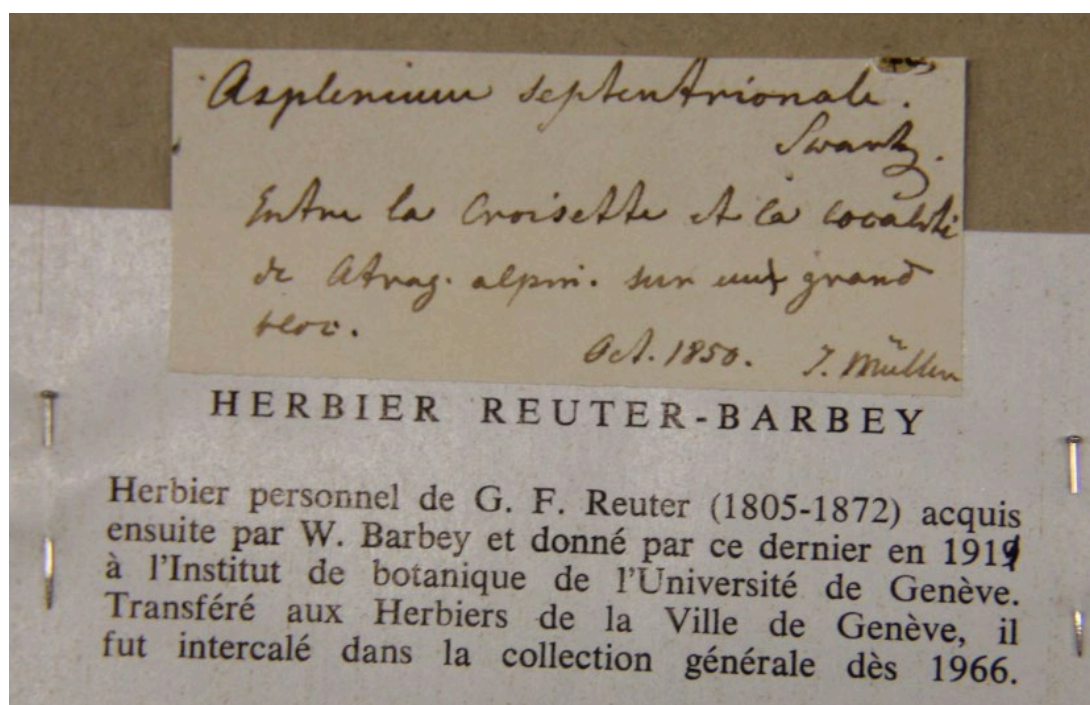 Asplenium septentrionale.
Swartz.
Entre la Croisette et la localité
de Atrag. alpin. sur un grand
bloc.
Oct. 1850. J. Müller
HERBIER REUTER-BARBEY
Herbier personnel de G. F. Reuter (1805-1872) acquis
ensuite par W. Barbey et donné par ce dernier en 191
à l'Institut de botanique de l'Université de Genève.
Transféré aux Herbiers de la Ville de Genève, il
fut intercalé dans la collection générale dès 1966.